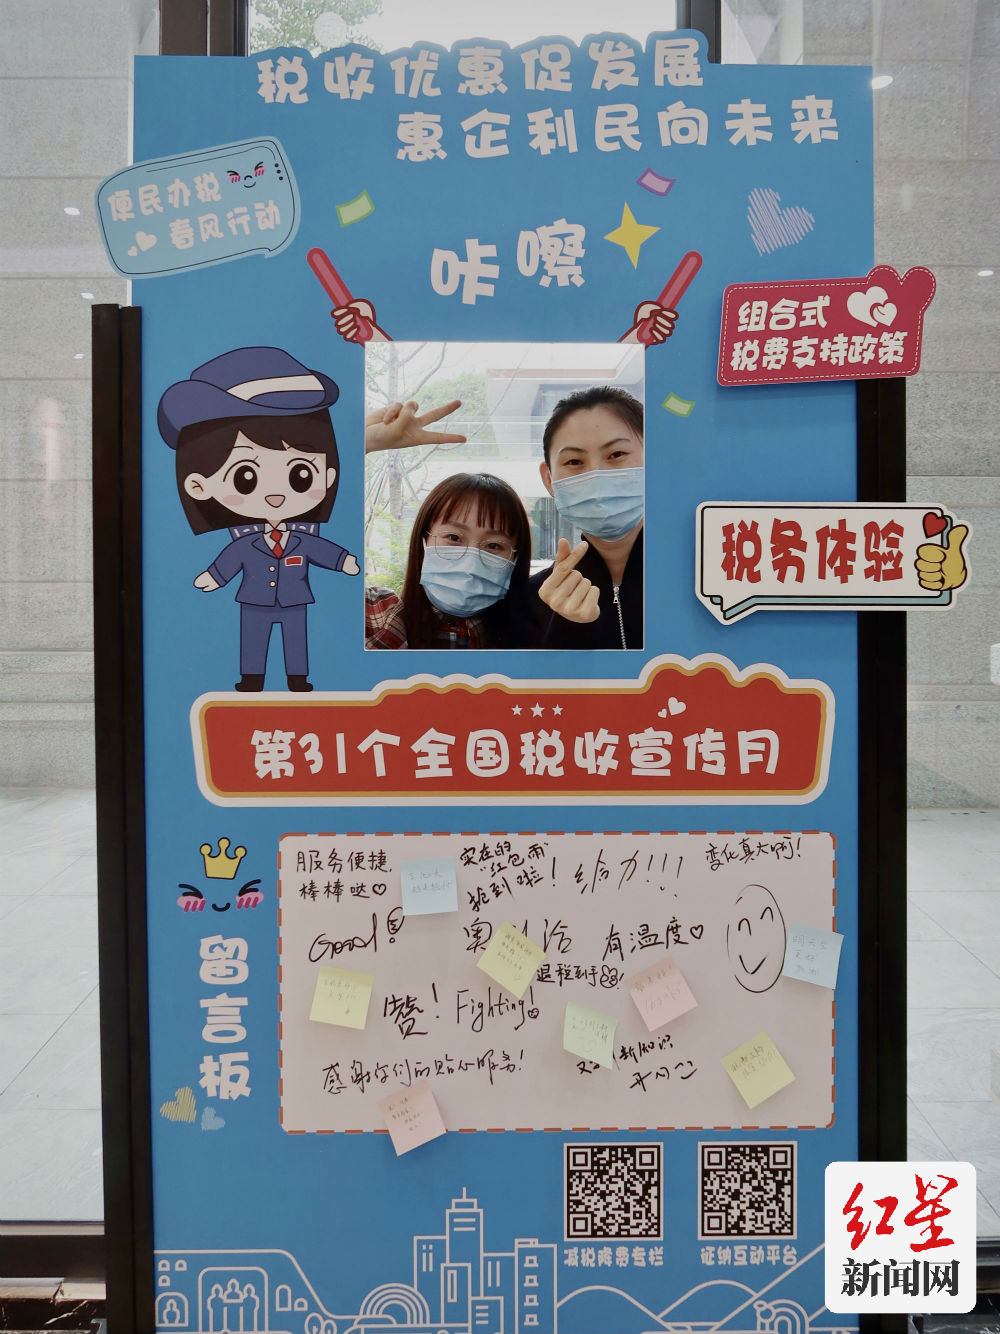 税收优惠促发展
惠企利民向未来
便民办税
春风行动
咔嚓
组合式
税费支持政策
税务体验
第31个全国税收宣传月
留言板
服务便捷,
棒棒哒♡
实在的
"红包雨"
抢到啦!
给力!!!
变化真大啊!
Good!
有温度♡
退税到手
赞!
Fighting!
感谢你们的贴心服务!
新知识
开心
减税降费专栏
征纳互动平台
红星
新闻网